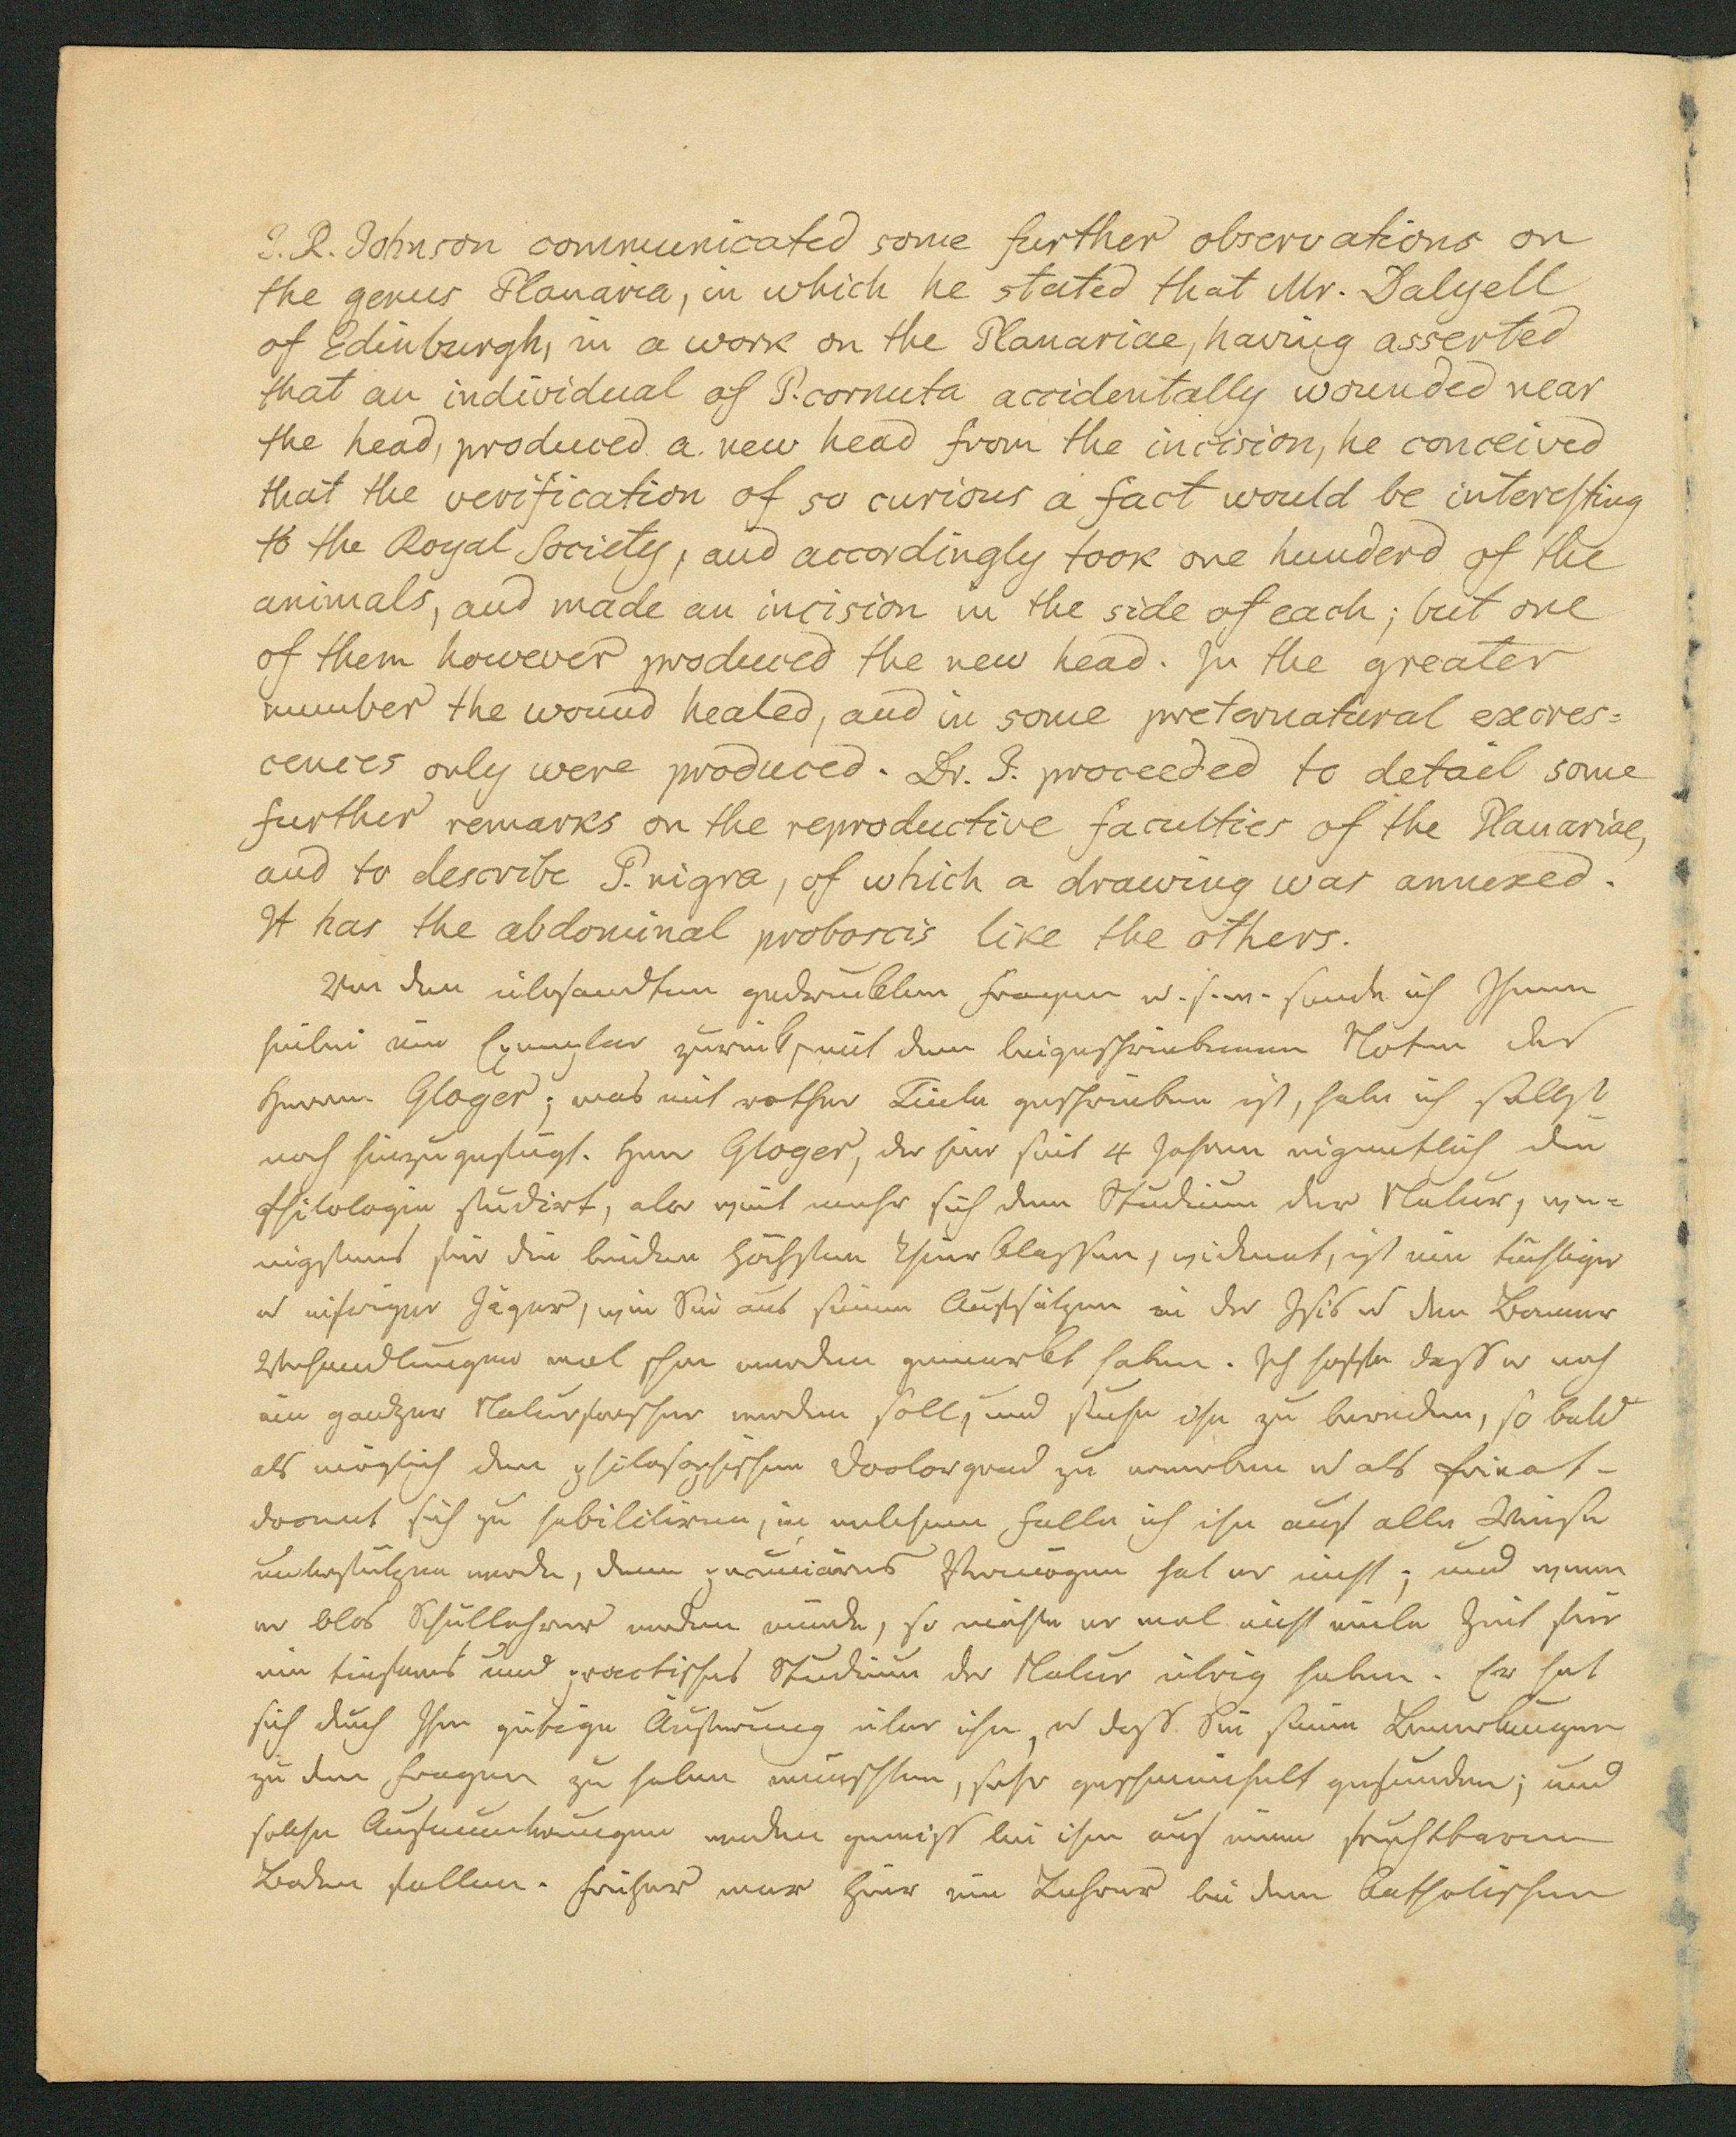 J. R. Johnson communicated some further observations on
the genus Planaria, in which he stated that Mr. Dalyell
of Edinburgh, in a work on the Planariae, having asserted
that an individual of P. cornuta accidentally wounded near
the head, produced a new head from the incision, he conceived
that the verification of so curious a fact would be interesting
to the Royal Society, and accordingly took one hunderd of the
animals, and made an incision in the side of each; but one
of them however produced the new head. In the greater
number the wound healed, and in some preternatural excres=
cences only were produced. Dr. J. proceeded to detail some
further remarks on the reproductive faculties of the Planariae,
and to describe P. nigra, of which a drawing was annexed.
It has the abdominal proboscis like the others.
Von den übersandten gedruckten Fragen u. s. w. sende ich Ihnen
hiebei ein Exemplar zurück, mit den beigeschriebenen Noten des
Herrn Gloger; was mit rother Tinte geschrieben ist, habe ich selbst
noch hinzugefügt. Herr Gloger, der hier seit 4 Jahren eigentlich die
Philologie studirt, aber weit mehr sich dem Studium der Natur, we-
nigstens für die beiden höchsten Thierklassen, widmet, ist ein tüchtiger
u eifriger Jäger, wie Sie aus seinen Aufsätzen in der Isis u den Bonner
Verhandlungen wol schon werden gemerkt haben. Ich hoffe dass er noch
ein ganzer Naturforscher werden soll, und suche ihn zu bereden, so bald
als möglich den philosophischen Doctorgrad zu erwerben u als Privat-
docent sich zu habilitiren, in welchem Falle ich ihn auf alle Weise
unterstützen werde, denn pecuniäres Vermögen hat er nicht; und wenn
er blos Schullehrer werden würde, so möchte er wol nicht viele Zeit für
ein tieferes und practisches Studium der Natur übrig haben. Er hat
sich durch Ihre gütige Äusserung über ihn, u dass Sie seine Bemerkungen
zu den Fragen zu haben wünschten, sehr geschmeichelt gefunden; und
solche Aufmunterungen werden gewiss bei ihm auf einen fruchtbaren
Boden fallen. Früher war hier ein Lehrer bei dem katholischen